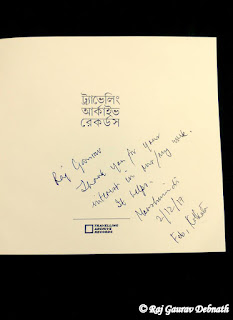 ট্র্যাভেলিং
আর্কাইভ
রেকর্ডস
Raj Gaurav
Thank you for your
interest in our/my work.
It helps.
2/12/17
TRAVELLING
ARCHIVE
RECORDS
© Raj Gaurav Debnath